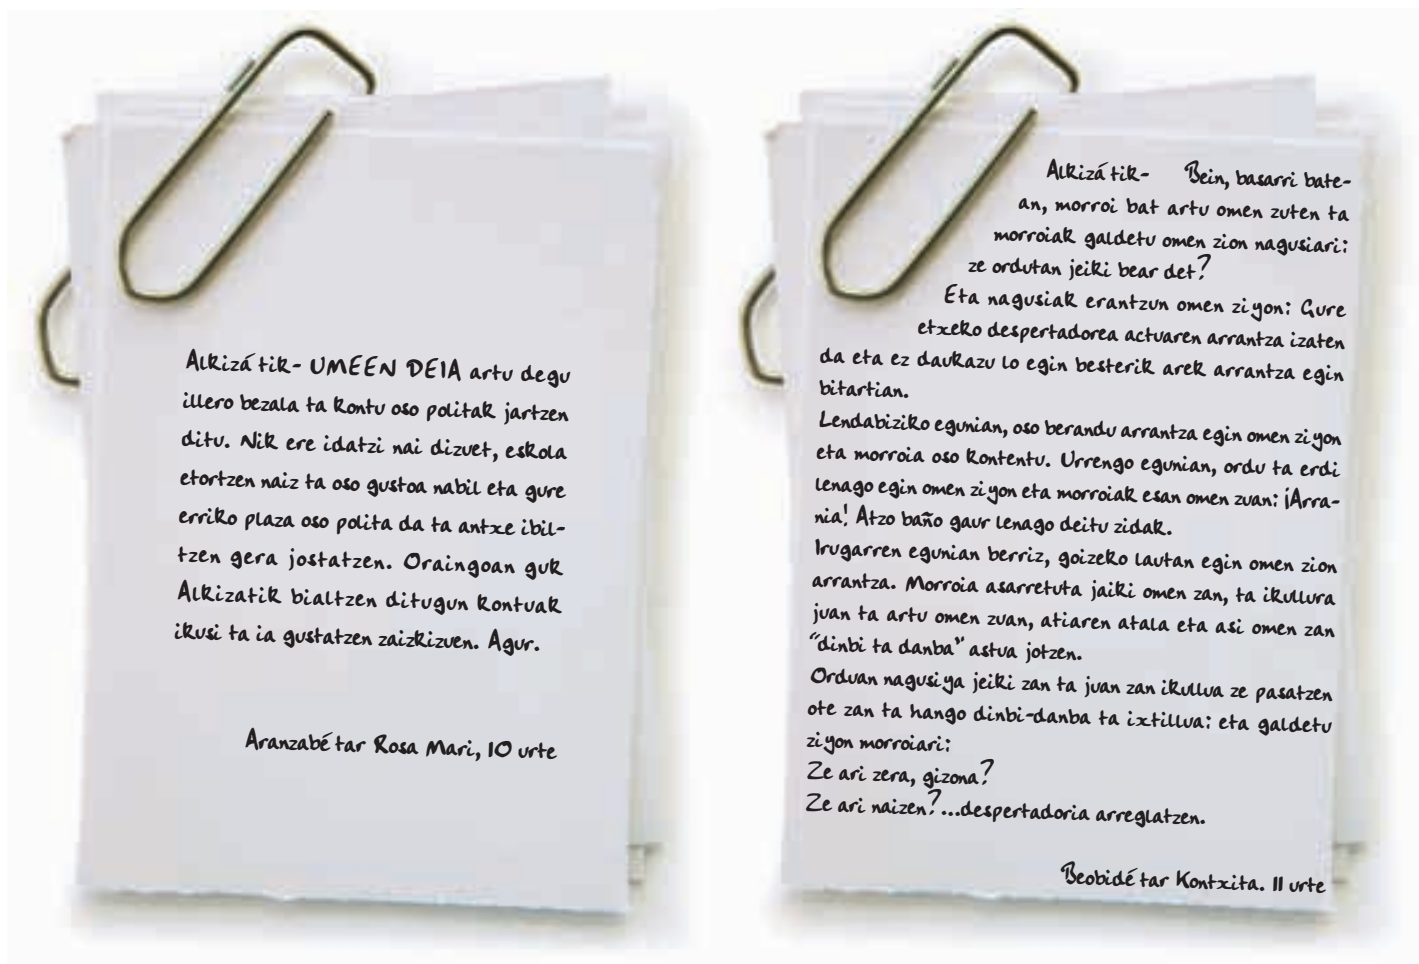 Alkizátik- UMEEN DEIA artu degu
illero bezala ta kontu oso politak jartzen
ditu. Nik ere idatzi nai dizuet, eskola
etortzen naiz ta oso gustoa nabil eta gure
erriko plaza oso polita da ta antxe ibil-
tzen gera jostatzen. Oraingoan guk
Alkizatik bialtzen ditugun kontuak
ikusi ta ia gustatzen zaizkizuen. Agur.
Aranzabétar Rosa Mari, 10 urte
Alkizátik- Bein, basarri bate-
an, morroi bat artu omen zuten ta
morroiak galdetu omen zion nagusiari:
ze ordutan jeiki bear det?
Eta nagusiak erantzun omen ziyon: Gure
etxeko despertadorea actuaren arrantza izaten
da eta ez daukazu lo egin besterik arek arrantza egin
bitartian.
Lendabiziko egunian, oso berandu arrantza egin omen ziyon
eta morroia oso kontentu. Urrengo egunian, ordu ta erdi
lenago egin omen ziyon eta morroiak esan omen zuan: ¡Arra-
nia! Atzo baño gaur lenago deitu zidak.
Irugarren egunian berriz, goizeko lautan egin omen zion
arrantza. Morroia asarretuta jaiki omen zan, ta ikullura
juan ta artu omen zuan, atiaren atala eta asi omen zan
"dinbi ta danba" astua jotzen.
Orduan nagusiya jeiki zan ta juan zan ikullua ze pasatzen
ote zan ta hango dinbi-danba ta ixtillua: eta galdetu
ziyon morroiari:
Ze ari zera, gizona?
Ze ari naizen?...despertadoria arreglatzen.
Beobidétar Kontxita. 11 urte